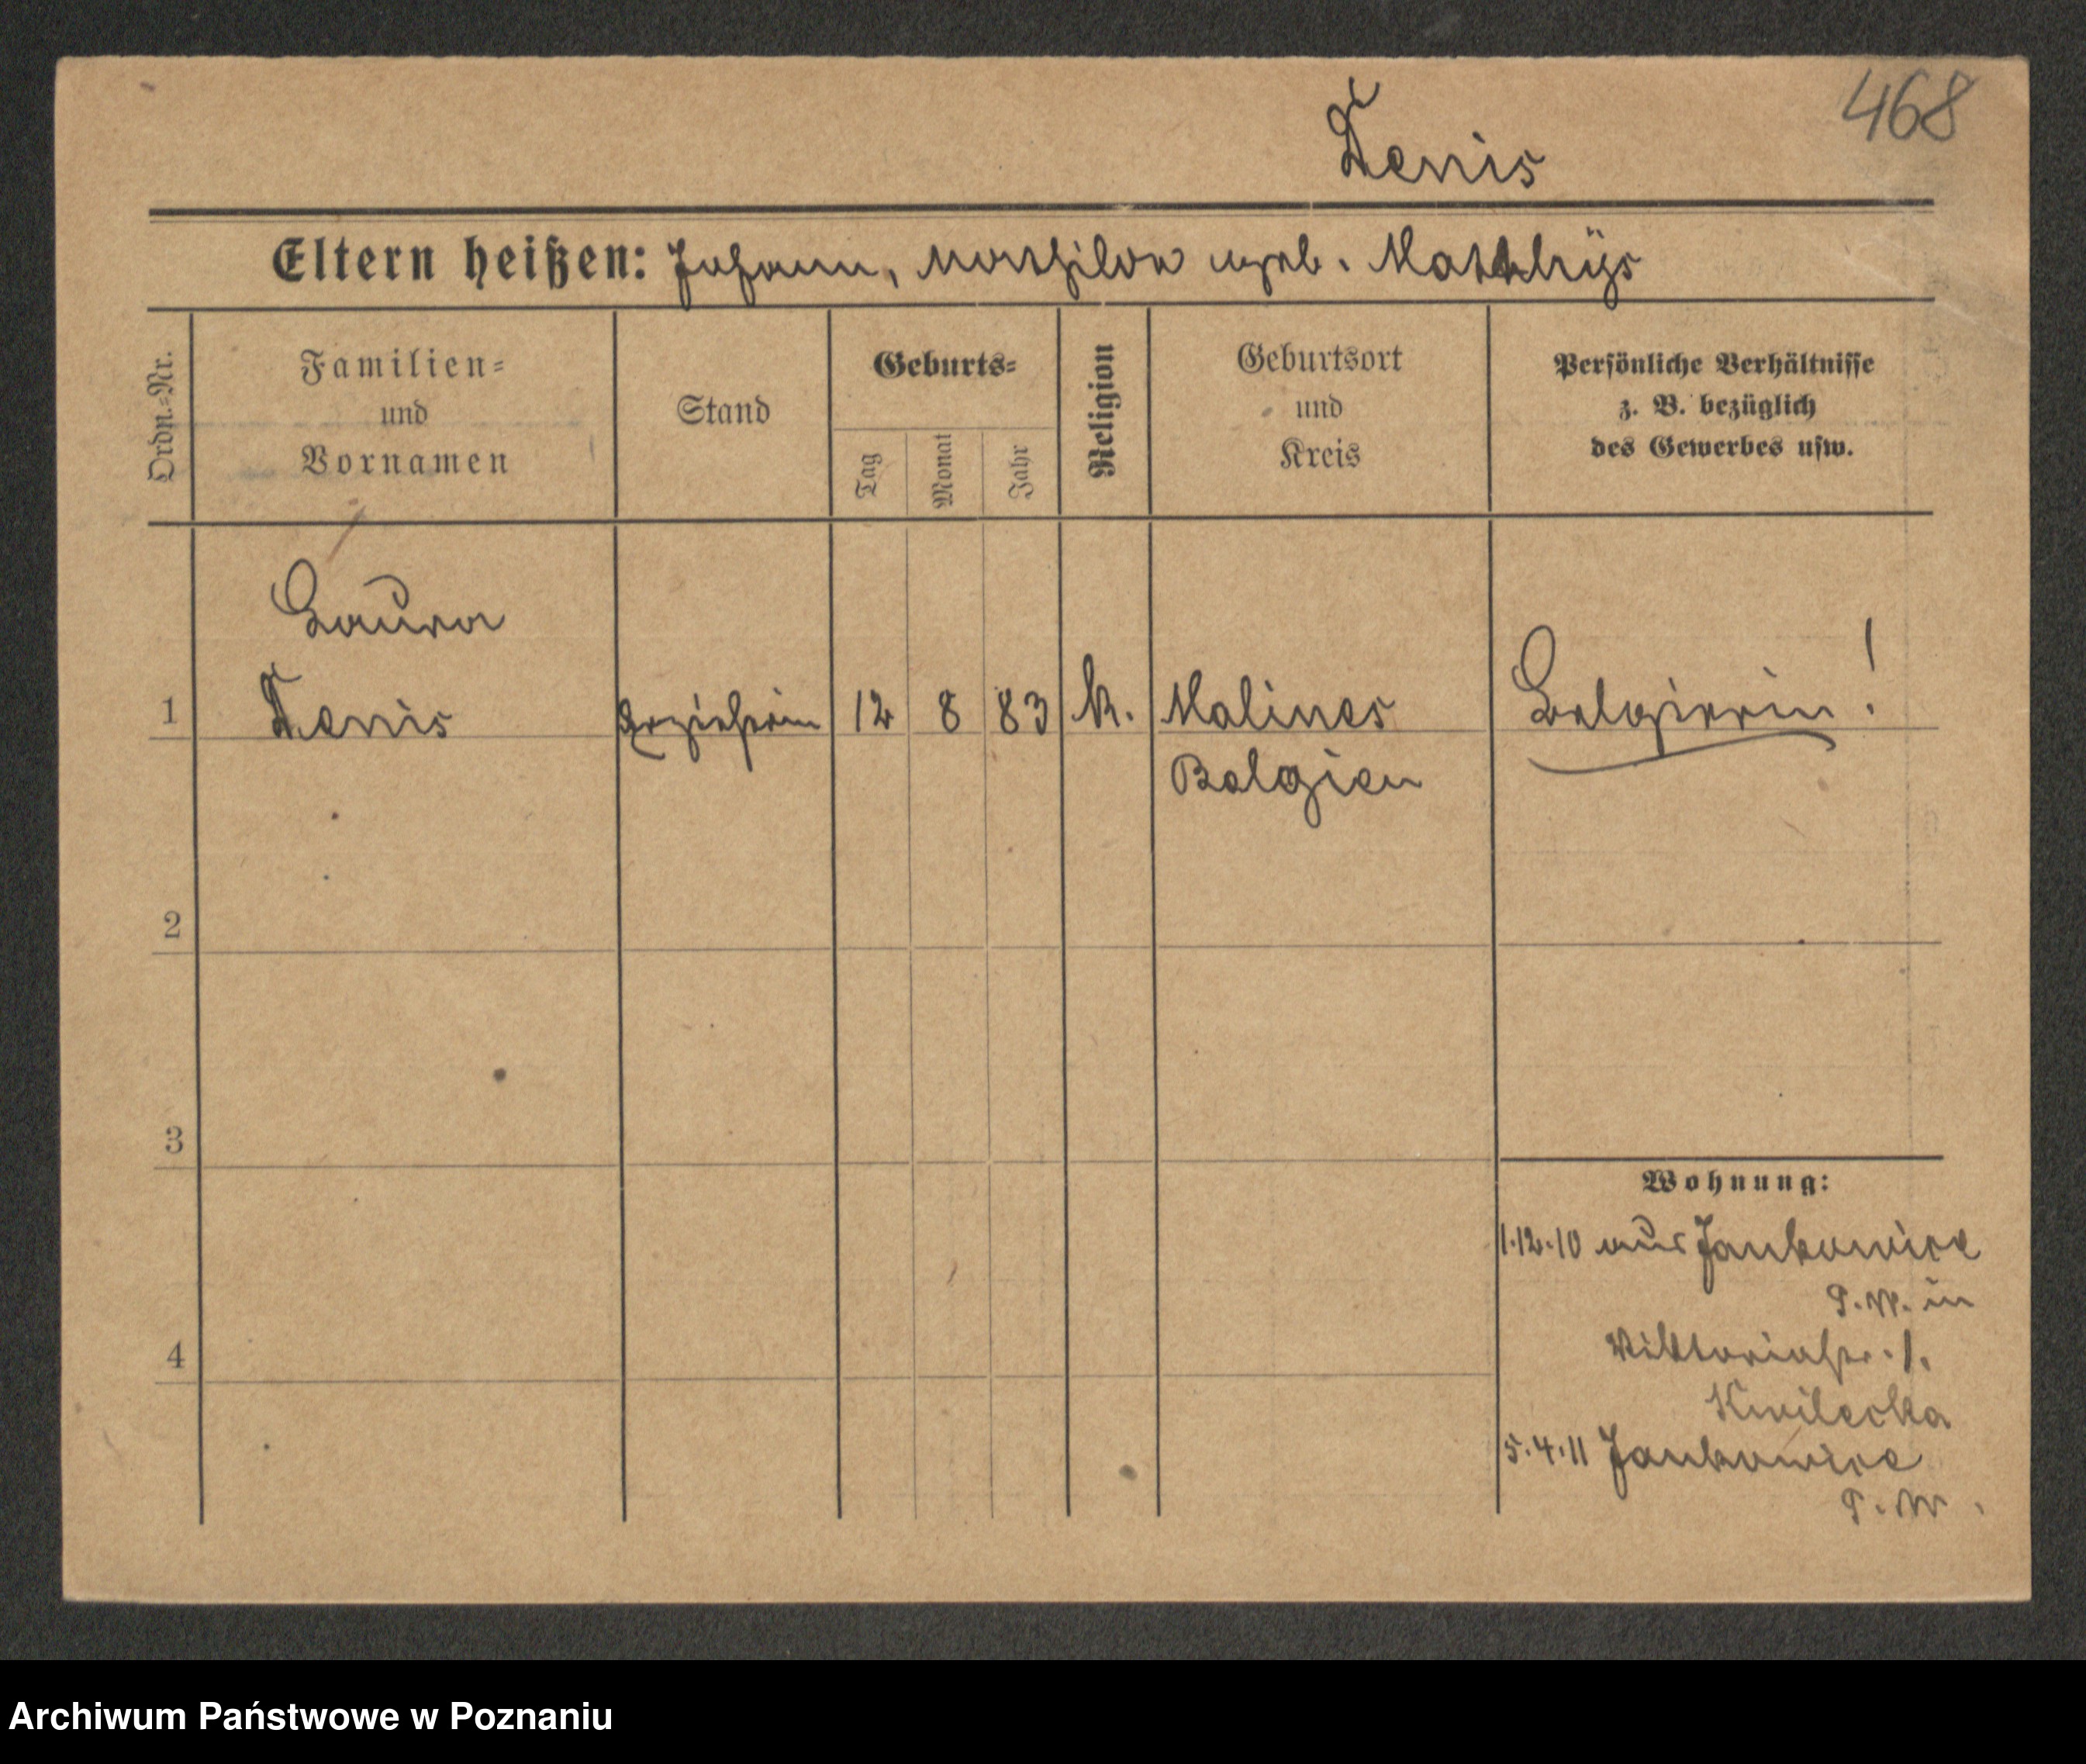 468
Denis
Eltern heißen: Johann, Mathilde geb. Matthys
Ordn.-Nr.
Familien-
und
Vornamen
Stand
Geburts-
Tag
Monat
Jahr
Religion
Geburtsort
und
Kreis
Persönliche Verhältnisse
z. B. bezüglich
des Gewerbes usw.
Laura
1 Denis Erzieherin 12 8 83 k. Malines Belgierin!
Belgien
2
3
4
Wohnung:
1.12.10 aus Jankowice
P.W. in
Viktoriastr. 1.
Kwilecka
5.4.11 Jankowice
P.W.
Archiwum Państwowe w Poznaniu